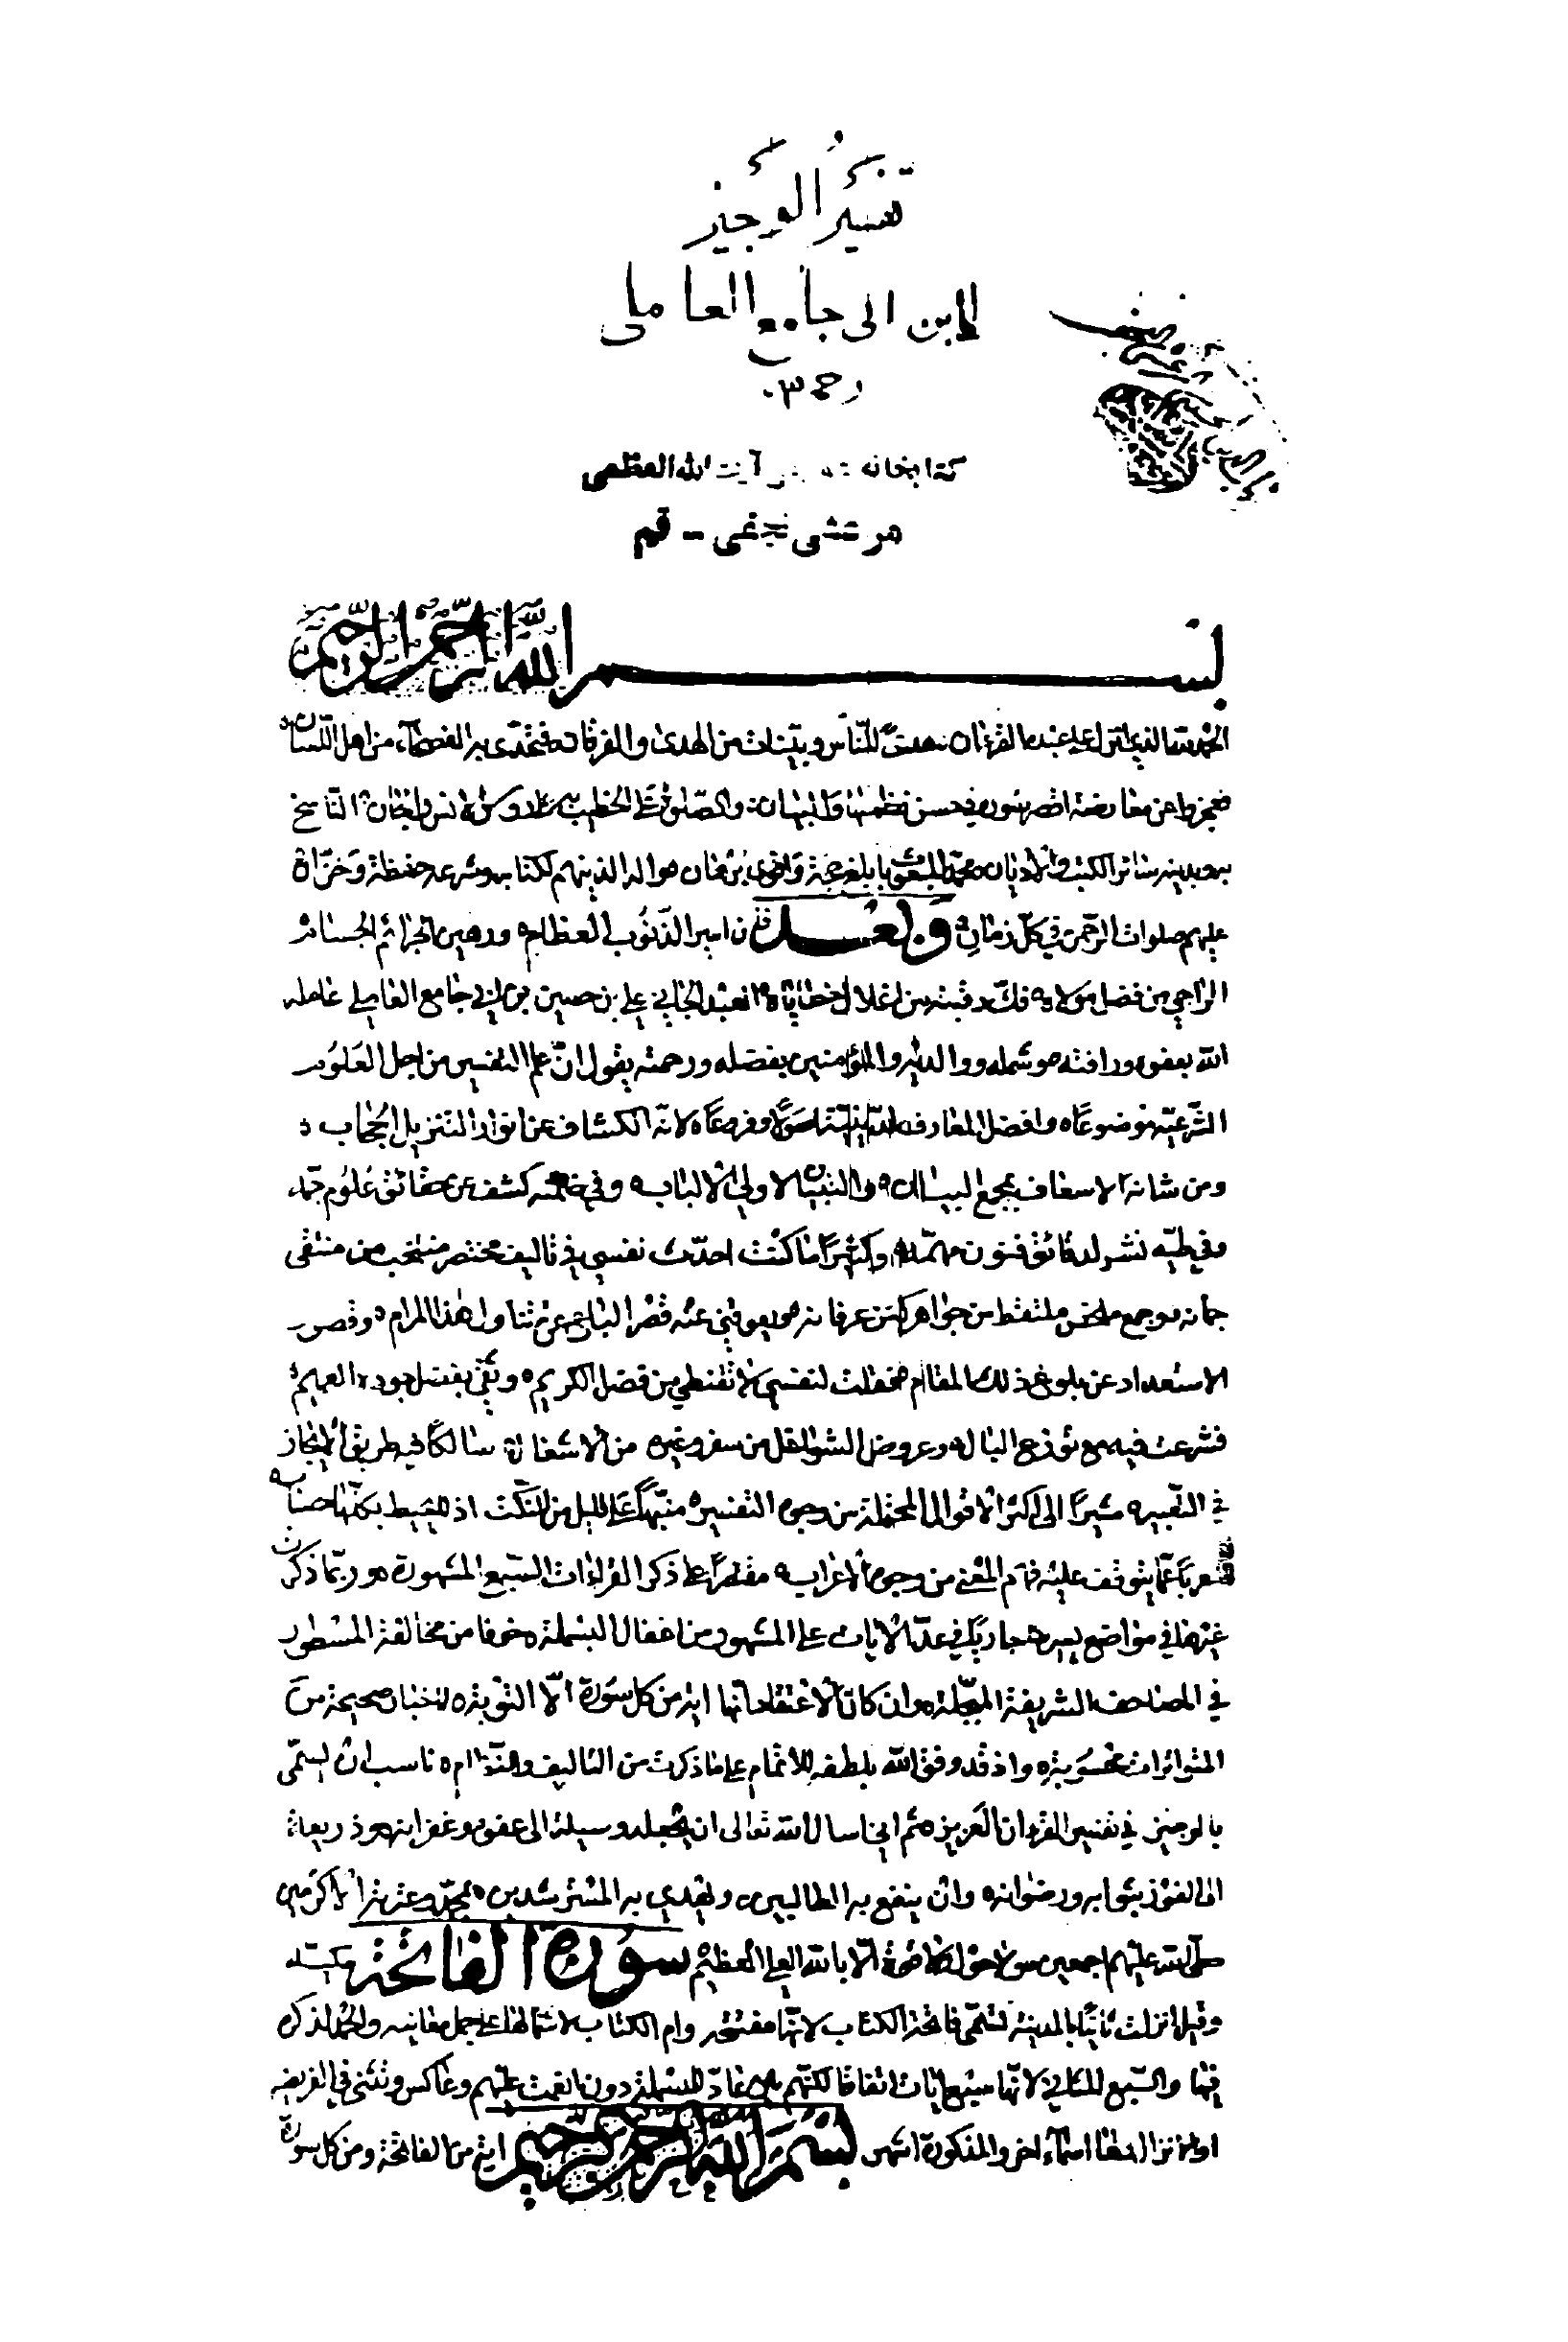 تفسير الوجيز
لابن ابى جامع العاملى
رحمه
كتابخانه آيت الله العظمى
مرعشى نجفى - قم
بسم الله الرحمن الرحيم
الحمد لله الذي انزل على عبده القرءان هدى للناس وبينات من الهدى والفرقان فتحدى به الفصحاء من اهل اللسان
فعجزوا عن معارضة اقصر سورة في حسن نظمها والبيان والصلوة على الخطيب به على رؤس الانس والجان الناسخ
بدينه سائر الكتب والاديان محمد المبعوث بابلغ حجة واقوى برهان واله الذين هم لكتابه وشرعه حفظة وخزان
عليهم صلوات الرحمن في كل زمان وبعد فان اسير الذنوب العظام ورهين الجرائم الجسام
الراجي من فضل مولاه فك رقبته من اغلال خطاياه العبد الجاني علي بن حسين بن ابي جامع العاملي عامله
الله بعفوه ورافته وشمله ووالديه والمؤمنين بفضله ورحمته يقول ان علم التفسير من اجل العلوم
الشرعية موضوعا وافضل المعارف الدينية اصولا وفروعا لانه الكشاف عن انوار التنزيل الحجاب
ومن شانه الاسعاف بمجمع البيان والتبيان لاولي الالباب وفي ضمنه كشف عن حقائق علوم جمة
وفي طيه نشر لدقائق فنون مهمة وكثيرا ما كنت احدث نفسي في تاليف مختصر منتخب من منتقى
جمانه وجمع ملخص ملتقط من جواهر كنز عرفانه ويعوقني عنه قصر الباع عن تناول هذا المرام وقصور
الاستعداد عن بلوغ ذلك المقام فقلت لنفسي لا تقنطي من فضل الكريم وثقي بفضل جوده العميم
فشرعت فيه مع توزع البال وعروض الشواغل من سفر وغيره من الاشغال سالكا فيه طريق الايجاز
في التعبير مشيرا الى اكثر الاقوال المحتملة من وجوه التفسير منبها على قليل من النكت اذ لا يحيط بكلها حساب
معربا عما يتوقف عليه فهم المعنى من وجوه الاعراب مقتصرا على ذكر القراءات السبع المشهورة وربما ذكرت
غيرها في مواضع يسيرة جاريا في عد الايات على المشهور من اغفال البسملة خوفا من مخالفة المسطور
في المصاحف الشريفة المبجلة وان كان الاعتقاد انها اية من كل سورة الا التوبة لاخبار صحيحة من
المتواترات محسوبة واذ قد وفق الله بلطفه للاتمام على ما ذكرت من التاليف والنظام ناسب ان يسمى
بالوجيز في تفسير القرءان العزيز ثم اني اسال الله تعالى ان يجعله وسيلة الى عفوه وغفرانه وذريعة
الى الفوز بثوابه ورضوانه وان ينفع به الطالبين ويهدي به المسترشدين بمحمد وعترته الاكرمين
صلى الله عليهم اجمعين ولا حول ولا قوة الا بالله العلي العظيم سورة الفاتحة مكية
وقيل انزلت ثانيا بالمدينة تسمى فاتحة الكتاب لانها مفتتحه وام الكتاب لاشتمالها على جمل معانيه والحمد لذكره
فيها والسبع المثاني لانها سبع ايات اتفاقا لكنهم بين عاد للبسملة دون انعمت عليهم وعاكس وتثنى في الفريضة
او الانزال ولها اسماء اخر والمذكورة اشهر بسم الله الرحمن الرحيم اية من الفاتحة ومن كل سورة